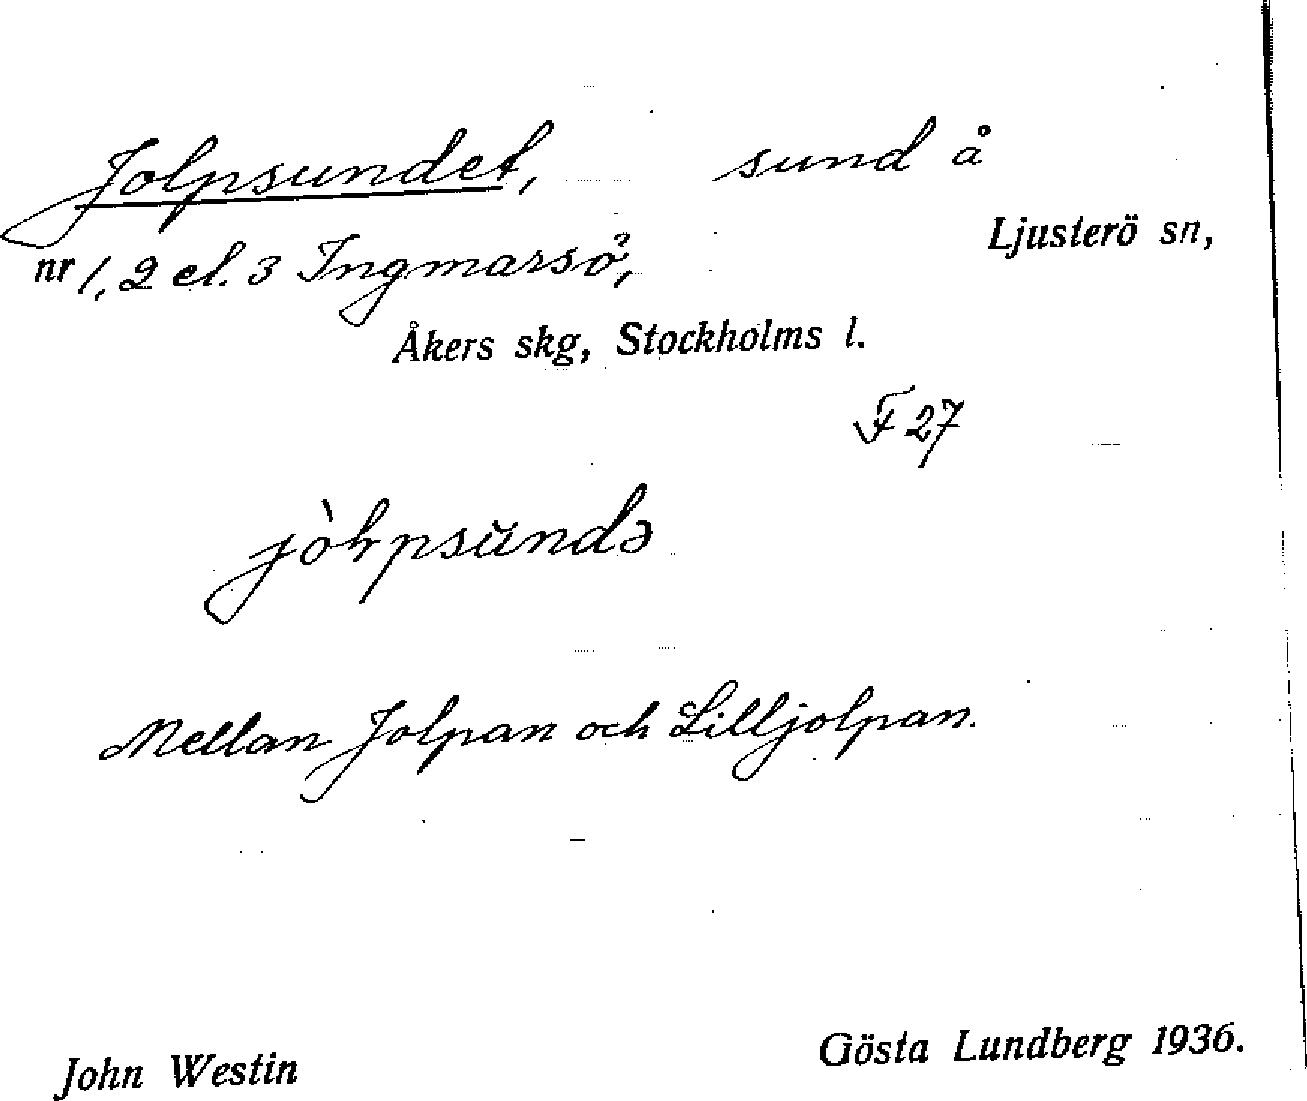 Jolpsundet, sund å
Ljusterö sn,
nr 1, 2 el. 3 Ingmarsö,
Åkers skg, Stockholms l.
F 27
Mellan Jolpan och Lilljolpan.
John Westin
Gösta Lundberg 1936.